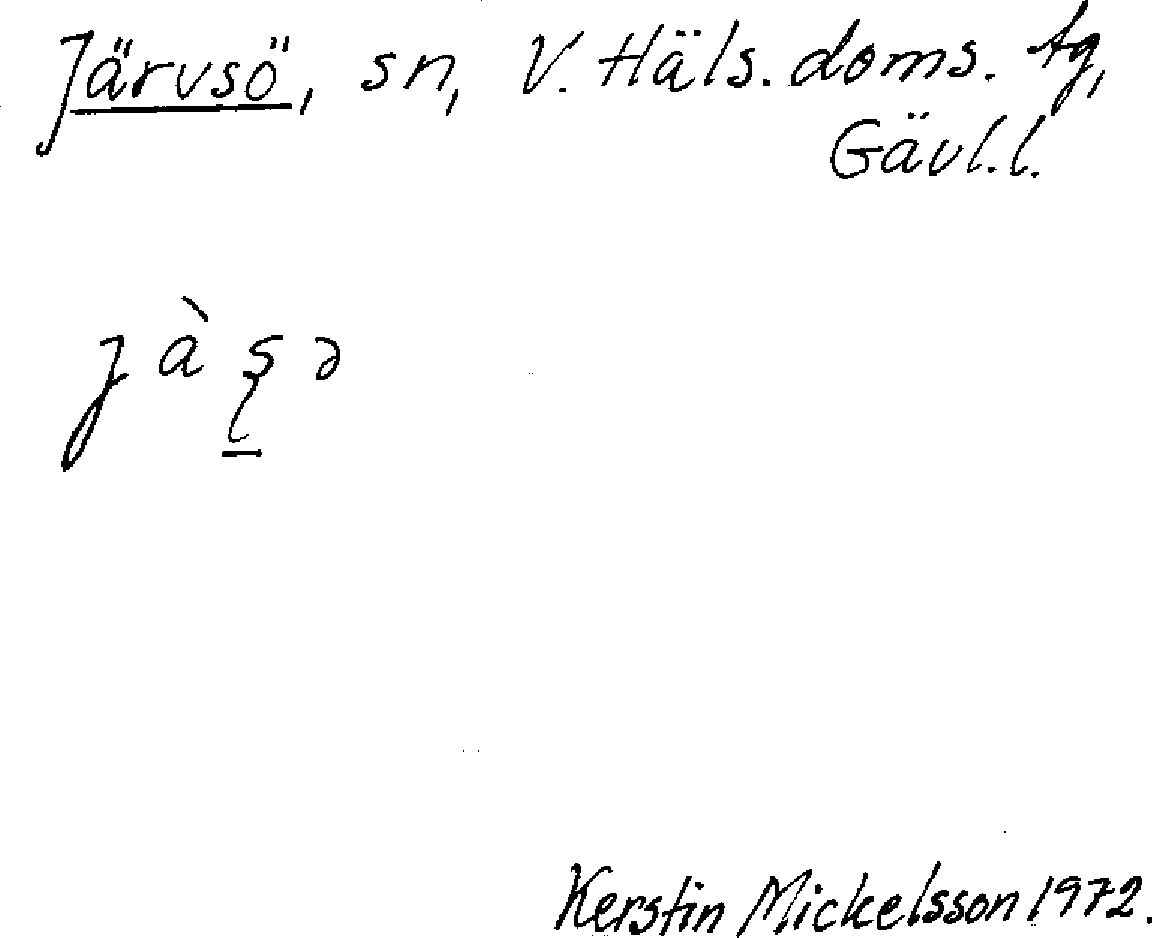 Järvsö, sn, V. Häls. doms. tg,
Gävl.l.
jàʂə
Kerstin Mickelsson 1972.